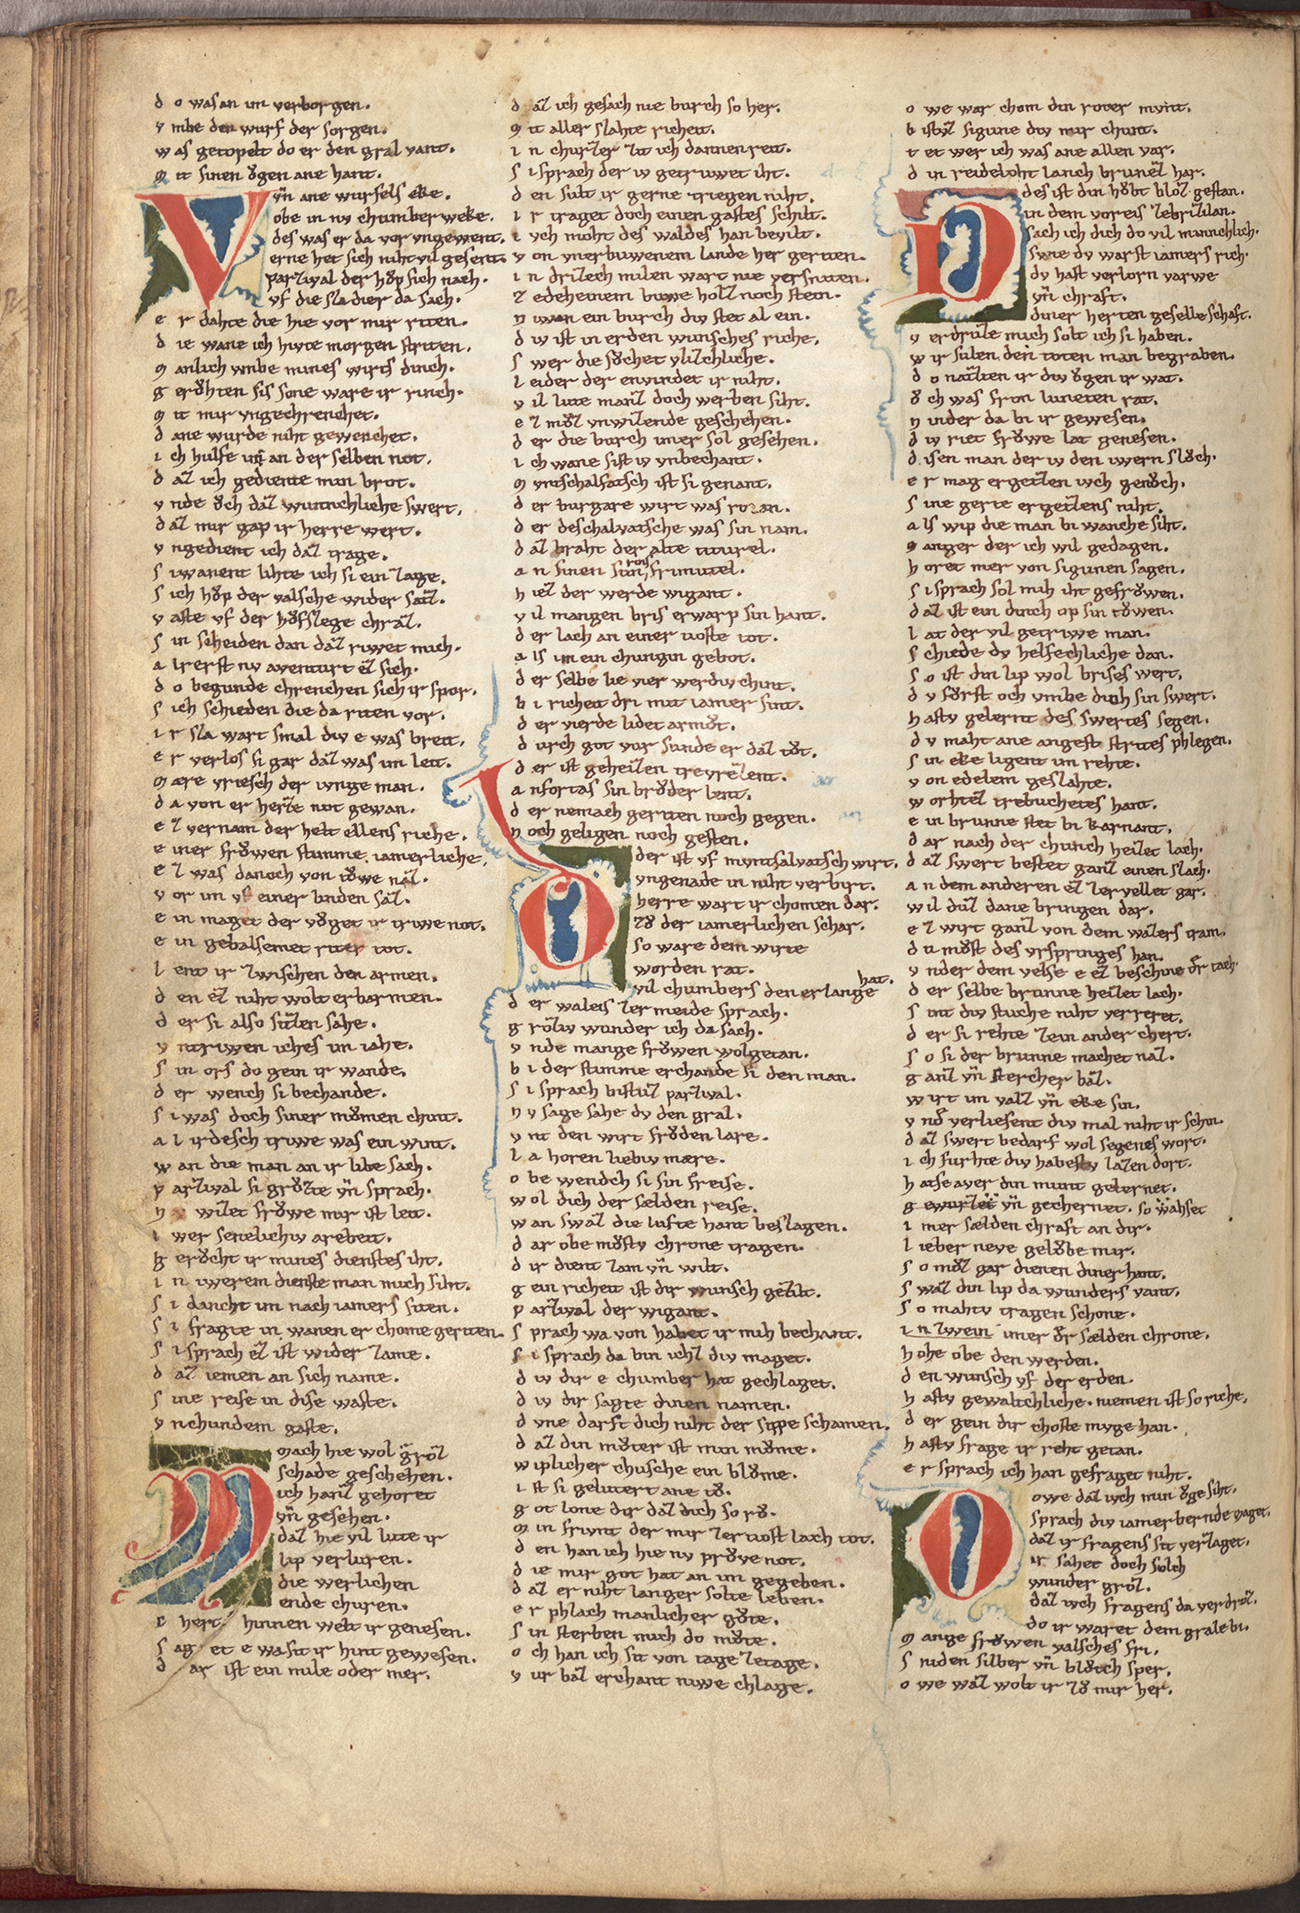 d o was an im verborgen.
v mbe den wurf der sorgen.
w as getopelt do er den gral vant.
m it sinen ŏgen ane hant.
Vn̄ ane wurfels eke.
obe in nv chumber weke.
des was er da vor vngewent.
erne het sich niht vil gesent.
parzival der hŏp sich nach.
vf die sla dier da sach.
e r dahte die hie vor mir riten.
d ie wane ich hivte morgen striten.
m anlich vmbe mines wirts dinch.
g erŏhten sis sone ware ir rinch.
m it mir vngechrenchet.
d ane wurde niht gewenchet.
i ch hulfe im an der selben not.
d az ich gediente min brot.
v nde ŏch daz wunnchliche swert.
d az mir gap ir herre wert.
v ngedient ich daz trage.
s i wanent lihte ich si ein zage.
s ich hŏp der valsche wider saz.
v aste vf der hŏfslege chraz.
s in scheiden dan daz riwet mich.
a lrerst nv aventurt ez sich.
d o begunde chrenchen sich ir spor.
s ich schieden die da riten vor.
i r sla wart smal div e was breit.
e r verlos si gar daz was im leit.
m ære vriesch der ivnge man.
d a von er herze not gewan.
e z vernam der helt ellens riche.
e iner frŏwen stimme iamerliche.
e z was danoch von tŏwe naz.
v or im vf einer linden saz.
e in maget der vŏget ir triwe not.
e in gebalsemet riter tot.
l ent ir zwischen den armen.
d en ez niht wolt erbarmen.
d er si also sitzen sahe.
v ntriwen iches im iahe.
s in ors do gein ir wande.
d er wench si bechande.
s i was doch siner mŏmen chint.
a l irdesch triwe was ein wint.
w an die man an ir libe sach.
p arzival si grŏzte vn̄ sprach.
wizet frŏwe mir ist leit.
i wer senelichiv arebeit.
g erŏcht ir mines dienstes iht.
i n iwerem dienste man mich siht.
s i dancht im nach iamers siten.
s i fragte in wanen er chome geriten.
s i sprach ez ist wider zame.
d az iemen an sich name.
s ine reise in dise waste.
v nchundem gaste.
Mach hie wol groz
schade geschehen.
ich hanz gehoret
vn̄ gesehen.
daz hie vil lute ir
lip verluren.
die werlichen
ende churen.
chert hinnen welt ir genesen.
s aget e wa sit ir hint gewesen.
d ar ist ein mile oder mer.
d az ich gesach nie burch so her.
m it aller slahte richeit.
i n churzer zit ich dannen reit.
s i sprach der iv getruwet iht.
d en sult ir gerne triegen niht.
i r traget doch einen gastes schilt.
i vch moht des waldes han bevilt.
v on vnerbuwenem lande her geriten.
i n drizech milen wart nie versniten.
z edeheinem buwe holz noch stein.
n iwan ein burch div stet al ein.
d iv ist in erden wunsches riche.
s wer die sŏchet vlizchliche.
l eider der envindet ir niht.
v il lute manz doch werben siht.
e z mŏz vnwizende geschehen.
d er die burch imer sol gesehen.
i ch wane sist iv vnbechant.
m vntschalfatsch ist si genant.
d er burgare wirt was roian.
d er deschalvatsche was sin nam.
d az braht der alte titurel.
a n sinen sun frimutel.
h iez der werde wigant.
v il mangen bris erwarp sin hant.
d er lach an einer tioste tot.
a ls im ein chungin gebot.
d er selbe lie vier werdiv chint.
b i richeit dri mit iamer sint.
d er vierde lidet armŏt.
d urch got vur sunde er daz tŏt.
d er ist geheizen trevrezent.
a nfortas sin brŏder lent.
d er nemach geriten noch gegen.
n och geligen noch gesten.
der ist vf mvntsalvatsch wirt.
vngenade in niht verbirt.
herre wart ir chomen dar.
zŏ der iamerlichen schar.
so ware dem wirte
worden rat.
vil chumbers den er lange hat.
d er waleis zer meide sprach.
g rŏziv wunder ich da sach.
v nde mange frŏwen wolgetan.
b i der stimme erchande si den man.
s i sprach bistuz parzival.
n v sage sahe dv den gral.
v nt den wirt frŏden lare.
l a horen liebiv mære.
o be wendch si sin freise.
w ol dich der sælden reise.
w an swaz die lufte hant beslagen.
d ar obe mŏstv chrone tragen.
d ir dient zam vn̄ wilt.
g ein richeit ist dir wunsch gezilt.
p arzival der wigant.
s prach wa von habet ir mih bechant.
s i sprach da bin ichz div maget.
d iv dir e chumber hat gechlaget.
d iv dir sagte dinen namen.
d vne darft dich niht der sippe schamen.
d az din mŏter ist min mŏme.
w iplicher chusche ein blŏme.
i st si gelutert ane tŏ.
g ot lone dir daz dich so rŏ.
m in frivnt der mir zer tiost lach tot.
d en han ich hie nv prŏve not.
d ie mir got hat an im gegeben.
d az er niht langer solte leben.
e r phlach manlicher gŏte.
s in sterben mich do mŏte.
o ch han ich sit von tage ze tage.
v ur baz erchant niwe chlage.
o we war chom din roter mvnt.
b istuz sigune div mir chunt.
t et wer ich was ane allen var.
d in reideloht lanch brunez har.
des ist din hŏbt bloz gestan.
in dem voreis zebrizilan.
sach ich dich do vil minnchlich.
swie dv warst iamers rich.
dv hast verlorn varwe
vn̄ chraft.
diner herten geselleschaft.
v erdruze mich solt ich si haben.
w ir sulen den toten man begraben.
d o nazten ir div ŏgen ir wat.
ŏ ch was fron luneten rat.
n inder da bi ir gewesen.
d iv riet frŏwe lat genesen.
d isen man der iv den iwern slŏch.
e r mag ergetzen ivch genŏch.
s ine gerte ergetzens niht.
a ls wip die man bi wanche siht.
m anger der ich wil gedagen.
h oret mer von sigunen sagen.
s i sprach sol mih iht gefrŏwen.
d az ist ein dinch op sin tŏwen.
l at der vil getriwe man.
s chiede dv helfechliche dan.
s o ist din lip wol brises wert.
d v fŏrst och vmbe dich sin swert.
h astv gelernt des swertes segen.
d v maht ane angest strites phlegen.
s in eke ligent im rehte.
v on edelem geslahte.
w orhtez trebuchetes hant.
e in brunne stet bi karnant.
d ar nach der chunch heizet lach.
d az swert bestet ganz einen slach.
a n dem anderen ez zervellet gar.
w il duz dane bringen dar.
e z wirt ganz von dem wazers tram.
d u mŏst des vrspringes han.
v nder dem velse e ez beschine dr̄ tach.
d er selbe brunne heizet lach.
s int div stuche niht verreret.
d er si rehte zein ander chert.
s o si der brunne machet naz.
g anz vn̄ stercher baz.
w irt im valz vn̄ eke sin.
v nd̄ verliesent div mal niht ir schin.
d az swert bedarf wol segenes wort.
i ch furhte div habestv lazen dort.
h atse aver din munt gelernet.
g ewurzet vn̄ gechernet. so wahset
i mer sælden chraft an dir.
l ieber neve gelŏbe mir.
s o mŏz gar dienen diner hant.
s waz din lip da wunders vant.
s o mahtv tragen schone.
i n zwein imer dr̄ sælden chrone.
h ohe obe den werden.
d en wunsch vf der erden.
h astv gewaltchliche. niemen ist so riche.
d er gein dir choste mvge han.
h astv frage ir reht getan.
e r sprach ich han gefraget niht.
Owe daz ivch min ŏge siht.
sprach div iamerbernde maget.
daz ir fragens sit verzaget.
ir sahet doch solch
wunder groz.
daz ivch fragens da verdroz.
do ir waret dem grale bi.
m ange frowen valsches fri.
s niden silber vn̄ blŏtch sper.
o we waz wolt ir zŏ mir her.